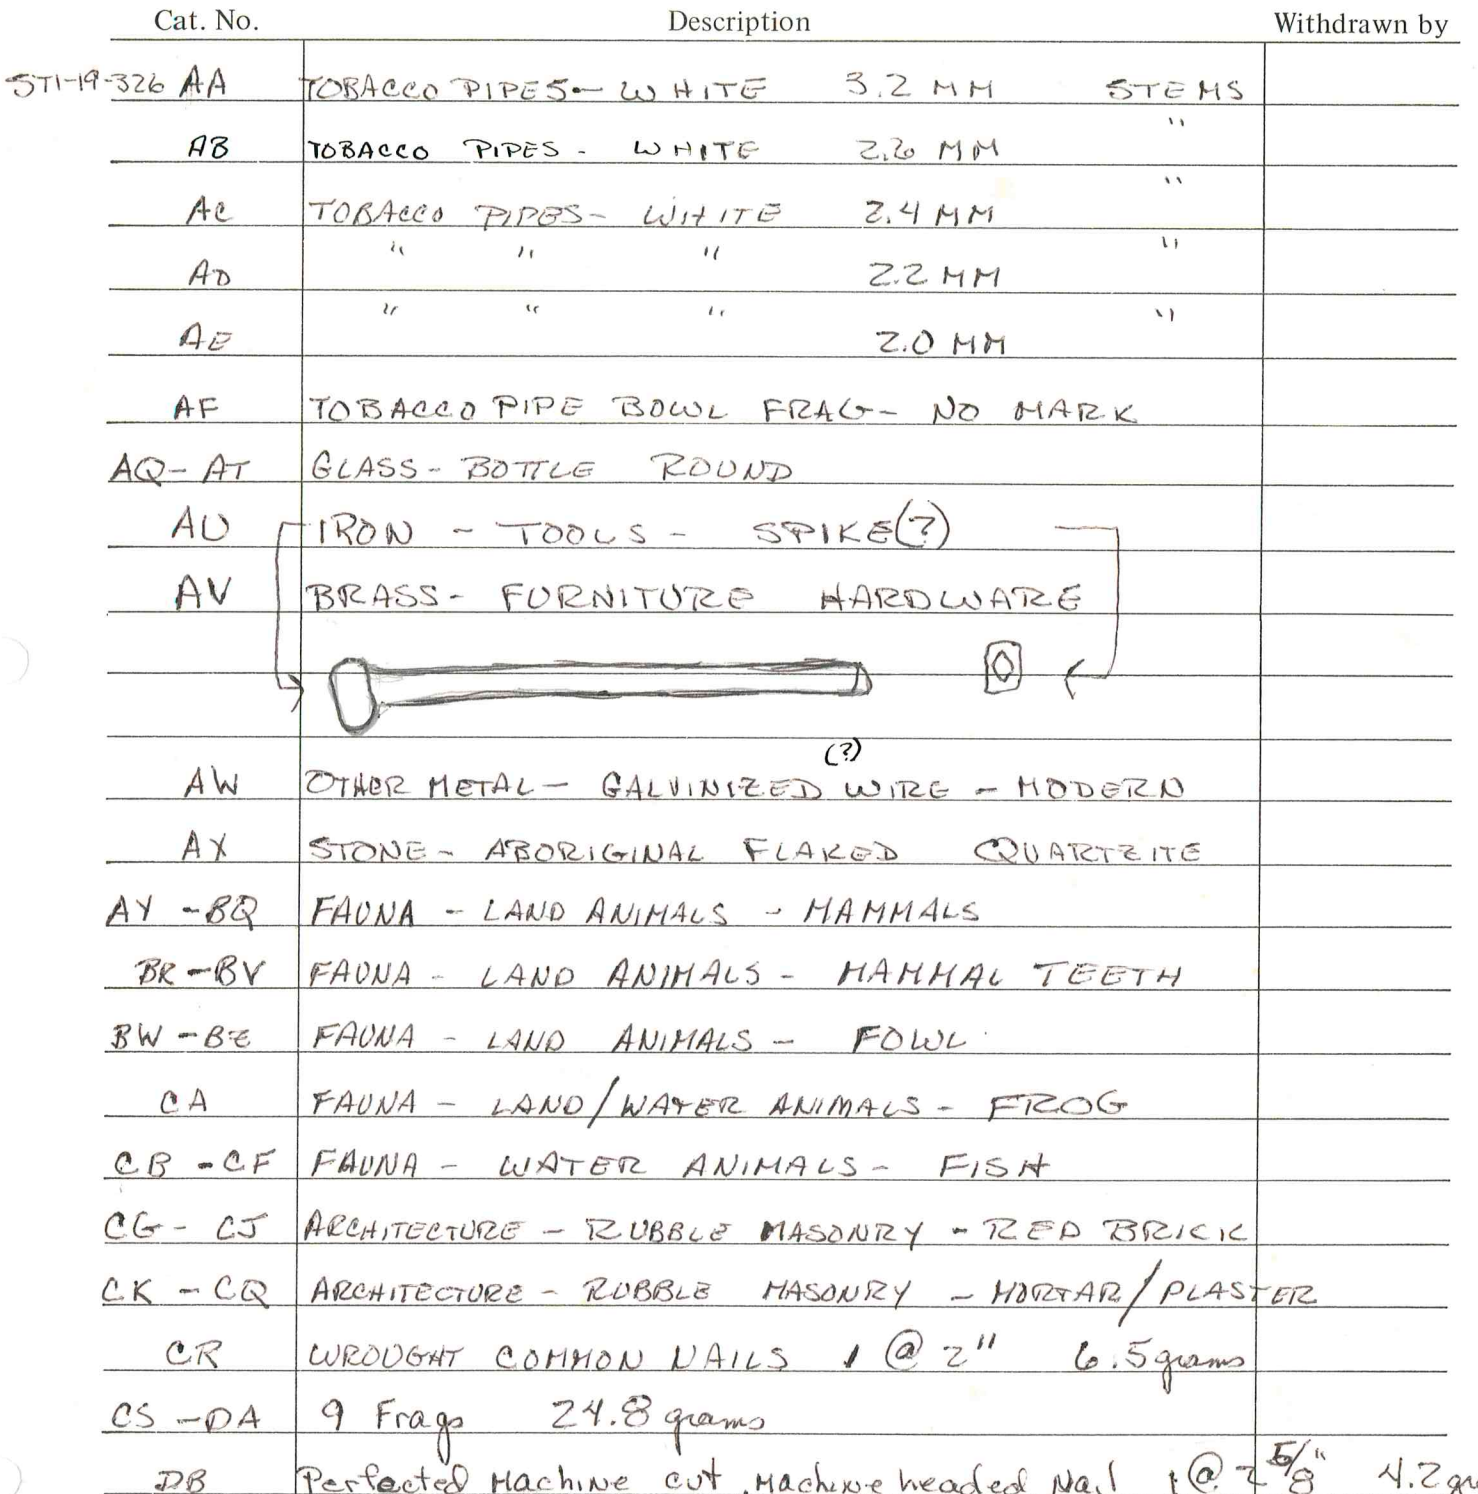 Cat. No. Description Withdrawn by
ST1-19-326 AA TOBACCO PIPES - WHITE 3.2 MM STEMS
AB TOBACCO PIPES - WHITE 2.6 MM "
AC TOBACCO PIPES - WHITE 2.4 MM "
AD " " " 2.2 MM "
AE " " " 2.0 MM "
AF TOBACCO PIPE BOWL FRAG - NO MARK
AQ - AT GLASS - BOTTLE ROUND
AU IRON - TOOLS - SPIKE (?)
AV BRASS - FURNITURE HARDWARE
(?)
AW OTHER METAL - GALVINIZED WIRE - MODERN
AX STONE - ABORIGINAL FLAKED QUARTZITE
AY - BQ FAUNA - LAND ANIMALS - MAMMALS
BR - BV FAUNA - LAND ANIMALS - MAMMAL TEETH
BW - BZ FAUNA - LAND ANIMALS - FOWL
CA FAUNA - LAND/WATER ANIMALS - FROG
CB - CF FAUNA - WATER ANIMALS - FISH
CG - CJ ARCHITECTURE - RUBBLE MASONRY - RED BRICK
CK - CQ ARCHITECTURE - RUBBLE MASONRY - MORTAR/PLASTER
CR WROUGHT COMMON NAILS 1 @ 2" 6.5 grams
CS - DA 9 Frags 24.8 grams
DB Perfected Machine cut, Machine headed Nail 1 @ 2 5/8" 4.2